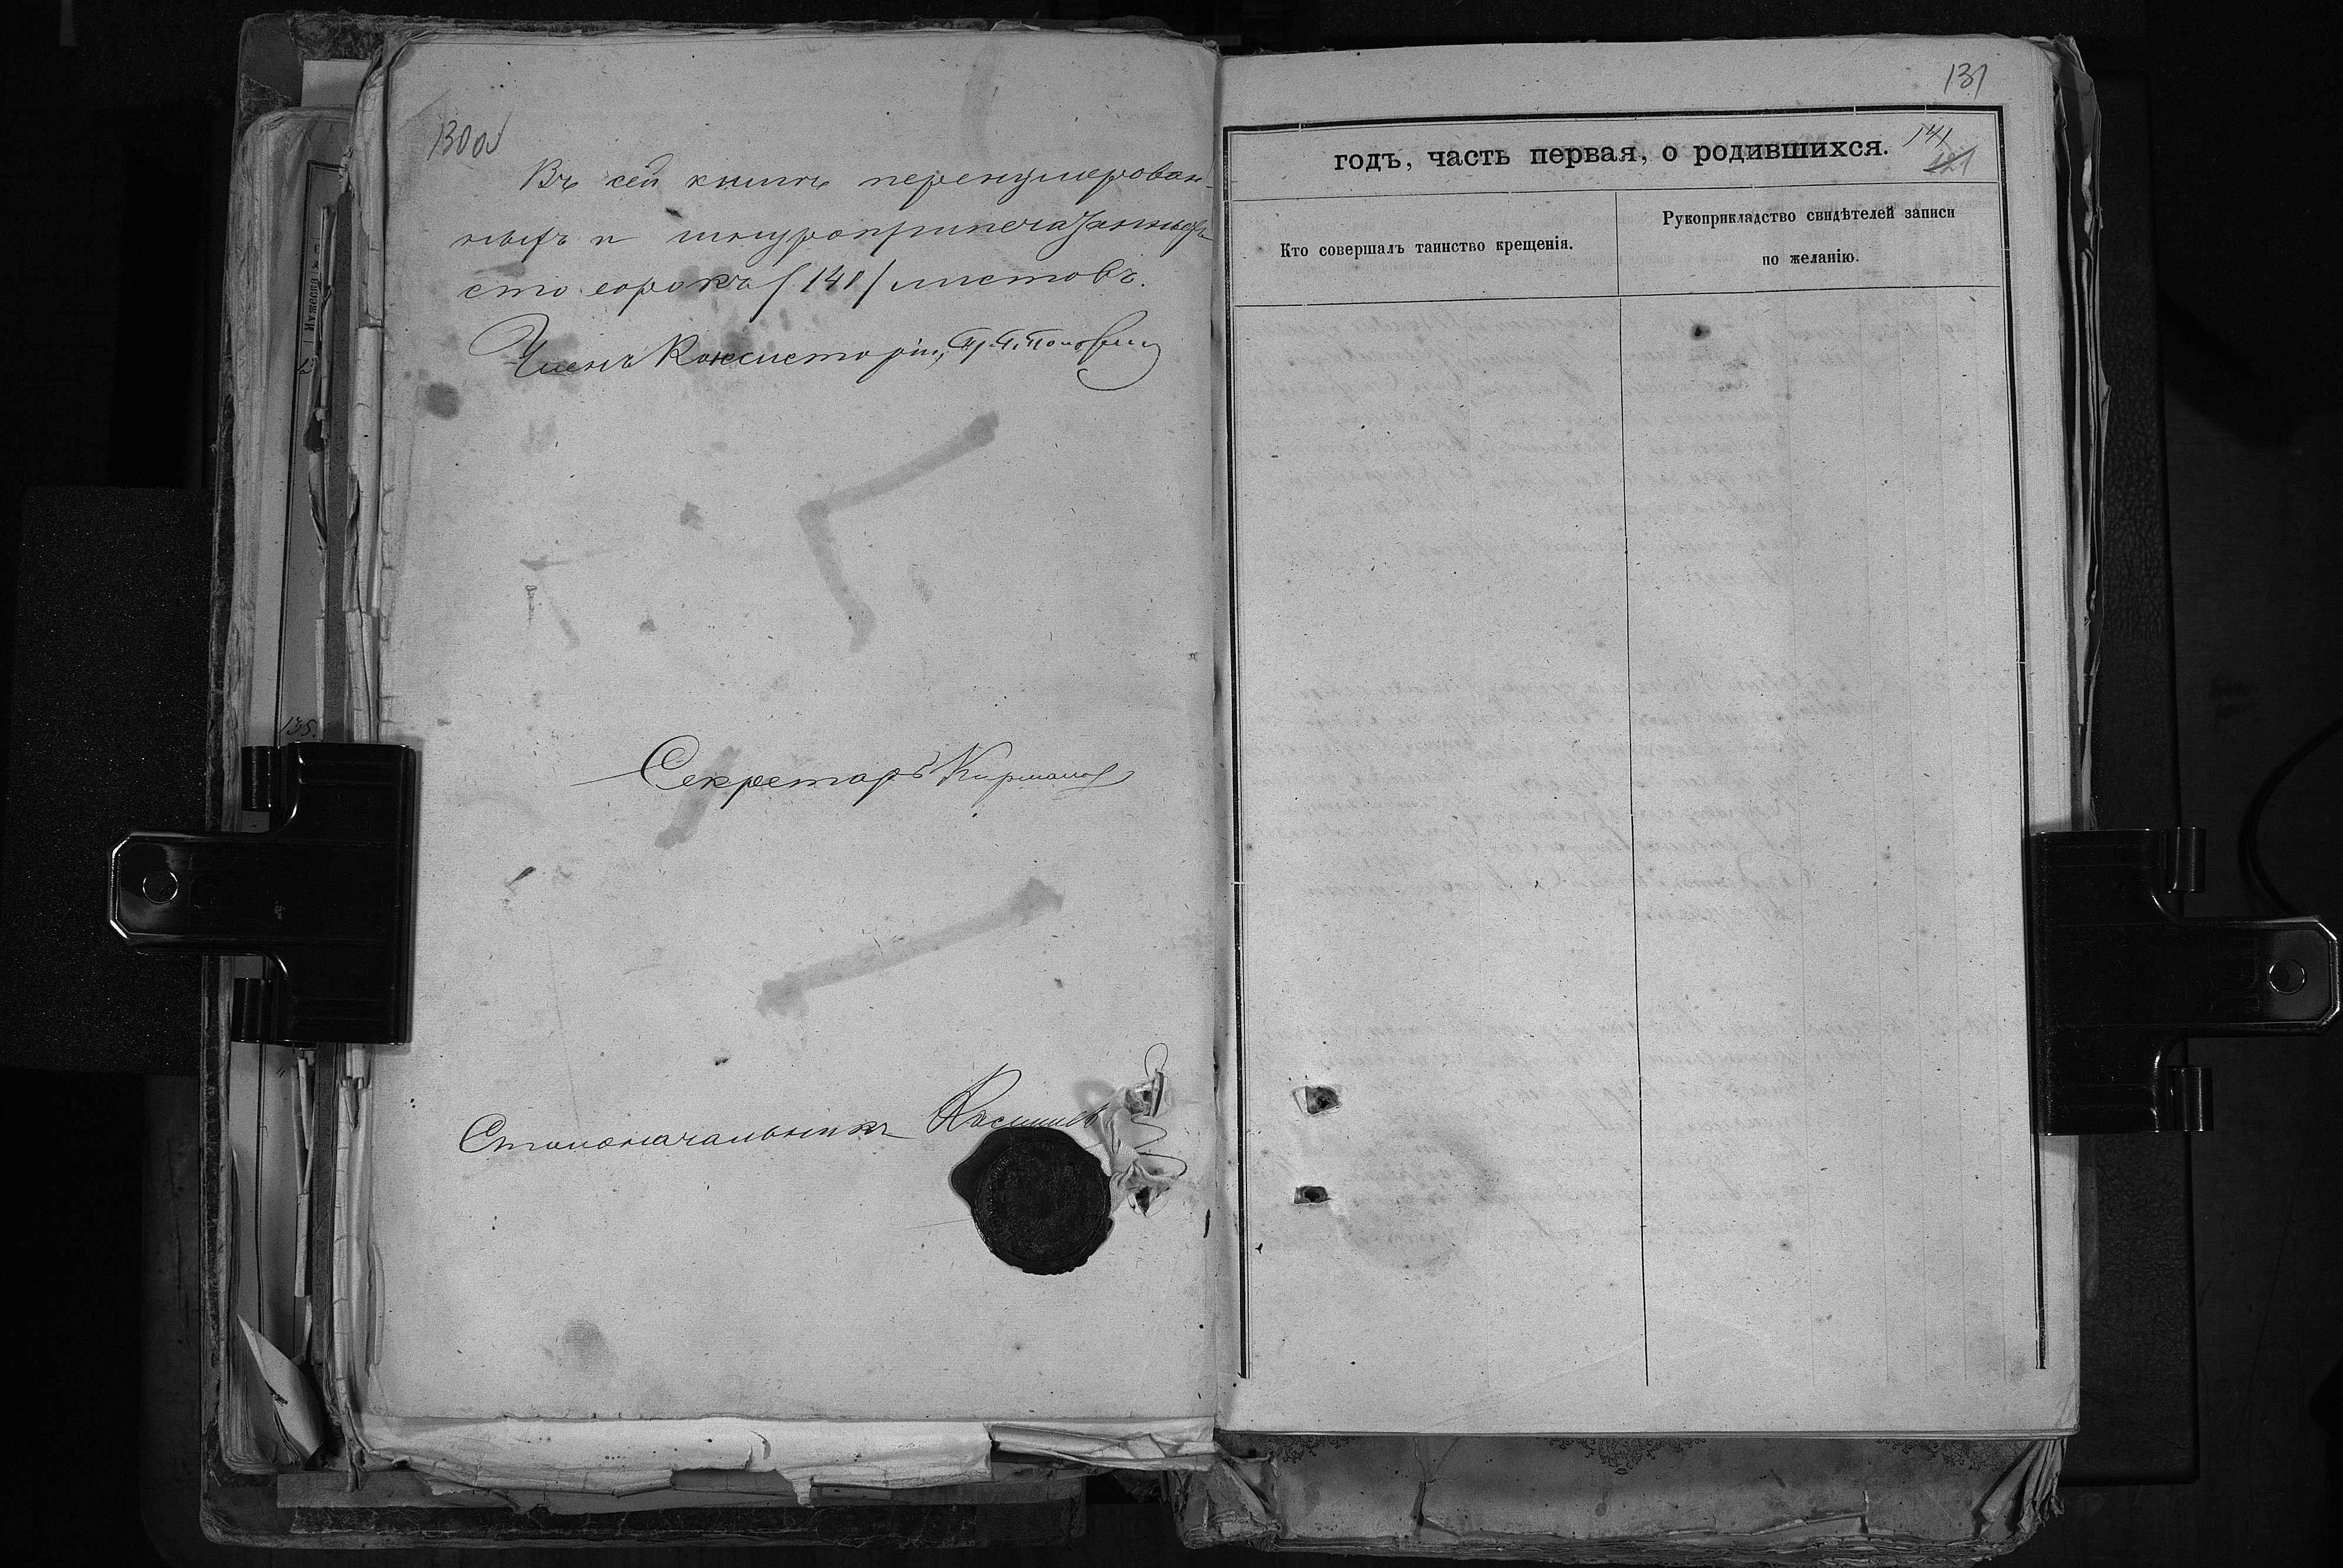 130об
Въ сей книгѣ перенумерован-
ныхъ и шнуроприпечатанныхъ
сто сорокъ (140) листовъ.
Членъ Консисторіи,
Секретарь
Столоначальникъ
135.
131
годъ, часть первая, о родившихся.
141
121
Кто совершалъ таинство крещенія.
Рукоприкладство свидѣтелей записи
по желанію.